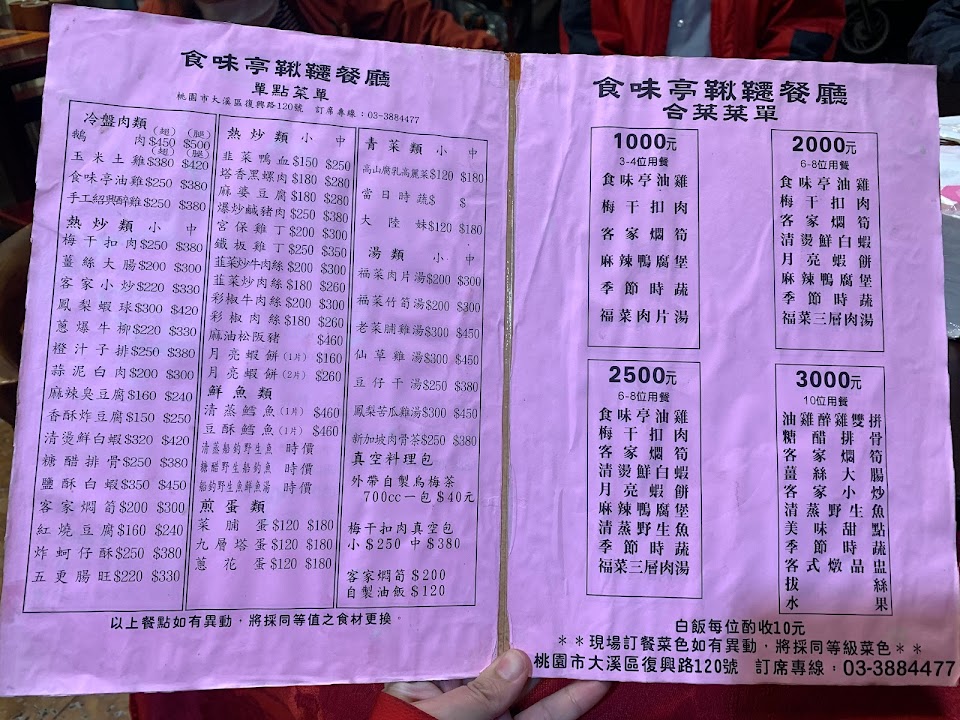 食味亭鞦韆餐廳
單點菜單
桃園市大溪區復興路120號 訂席專線：03-3884477
冷盤肉類
(翅) (腿)
鵝肉$450 $500
(翅) (腿)
玉米土雞$380 $420
食味亭油雞$250 $380
手工紹興醉雞$250 $380
熱炒類 小 中
梅干扣肉$250 $380
薑絲大腸$200 $300
客家小炒$220 $330
鳳梨蝦球$300 $420
蔥爆牛柳$220 $330
橙汁子排$250 $380
蒜泥白肉$200 $300
麻辣臭豆腐$160 $240
香酥炸豆腐$150 $250
清燙鮮白蝦$320 $420
糖醋排骨$250 $380
鹽酥白蝦$350 $450
客家燜筍$200 $300
紅燒豆腐$160 $240
炸蚵仔酥$250 $380
五更腸旺$220 $330
熱炒類 小 中
韭菜鴨血$150 $250
塔香黑螺肉$180 $280
麻婆豆腐$180 $280
爆炒鹹豬肉$250 $380
宮保雞丁$200 $300
鐵板雞丁$250 $350
韭菜炒牛肉絲$200 $300
韮菜炒肉絲$180 $260
彩椒牛肉絲$200 $300
彩椒肉絲$180 $260
麻油松阪豬 $460
月亮蝦餅(1片) $160
月亮蝦餅(2片) $260
鮮魚類
清蒸鱈魚(1片) $460
豆酥鱈魚(1片) $460
清蒸船釣野生魚 時價
糖醋野生船釣魚 時價
船釣野生魚鮮魚湯 時價
煎蛋類
菜脯蛋$120 $180
九層塔蛋$120 $180
蔥花蛋$120 $180
青菜類 小 中
高山腐乳高麗菜$120 $180
當日時蔬$ $
大陸妹$120 $180
湯類 小 中
福菜肉片湯$200 $300
福菜竹筍湯$200 $300
老菜脯雞湯$300 $450
仙草雞湯$300 $450
豆仔干湯$250 $380
鳳梨苦瓜雞湯$300 $450
新加坡肉骨茶$250 $380
真空料理包
外帶自製烏梅茶
700cc一包$40元
梅干扣肉真空包
小$250 中$380
客家燜筍$200
自製油飯$120
以上餐點如有異動，將採同等值之食材更換。
食味亭鞦韆餐廳
合菜菜單
1000元
3-4位用餐
食味亭油雞
梅干扣肉
客家燜筍
麻辣鴨腐堡
季節時蔬
福菜肉片湯
2000元
6-8位用餐
食味亭油雞
梅干扣肉
客家燜筍
清燙鮮白蝦
月亮蝦餅
麻辣鴨腐堡
季節時蔬
福菜三層肉湯
2500元
6-8位用餐
食味亭油雞
梅干扣肉
客家燜筍
清燙鮮白蝦
月亮蝦餅
麻辣鴨腐堡
清蒸野生魚
季節時蔬
福菜三層肉湯
3000元
10位用餐
油雞醉雞雙拼
糖醋排骨
客家燜筍
薑絲大腸
客家小炒
清蒸野生魚
美味甜點
季節時蔬
客式燉品盅
拔絲
水果
白飯每位酌收10元
**現場訂餐菜色如有異動，將採同等級菜色**
桃園市大溪區復興路120號 訂席專線：03-3884477